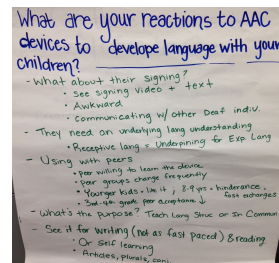 What are your reactions to AAC
devices to develop language with your
children?
- What about their signing?
• See signing video + text
• Awkward
• Communicating w/ other Deaf indiv.
- They need an underlying lang understanding
• Receptive lang = Underpinning for Exp. Lang
- Using with peers
• peer willing to learn the device
• Peer groups change frequently
• Younger kids - like it, 8-9 yrs = hinderance, fast exchanges
• 3rd-4th grade peer acceptance ↓
- What's the purpose? Teach Lang Struc or In Commun
- See it for writing (not as fast paced) & reading
• Or Self learning
• Articles, plurals,